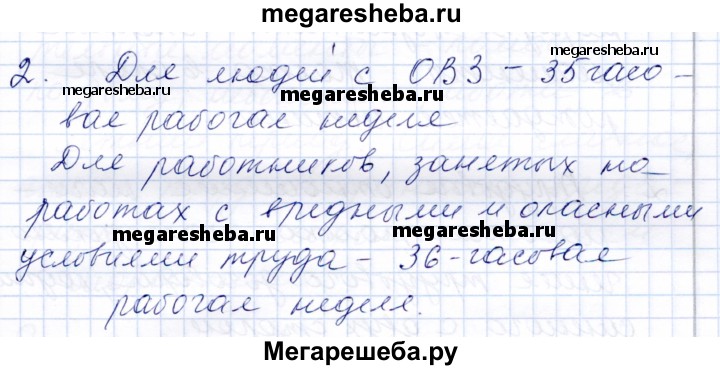 megaresheba.ru
2. Для людей с ОВЗ – 35 часо-
megaresheba.ru
megaresheba.ru
megaresheba.ru
вая рабочая неделя
Для работников, занятых на
работах с вредными и опасными
megaresheba.ru
megaresheba.ru
условиями труда – 36-часовая
рабочая неделя.
Мегарешеба.ру